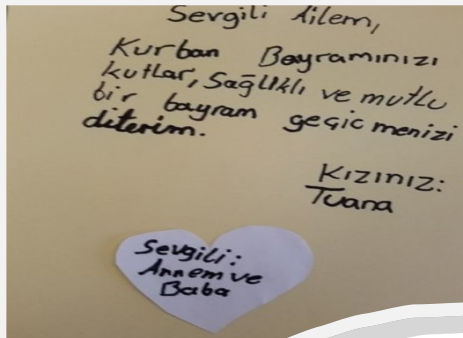 Sevgili Ailem,
Kurban Bayramınızı
kutlar, Sağlıklı ve mutlu
bir bayram geçicmenizi
diterim.
Kızınız:
Tuana
Sevgili:
Annem ve
Baba